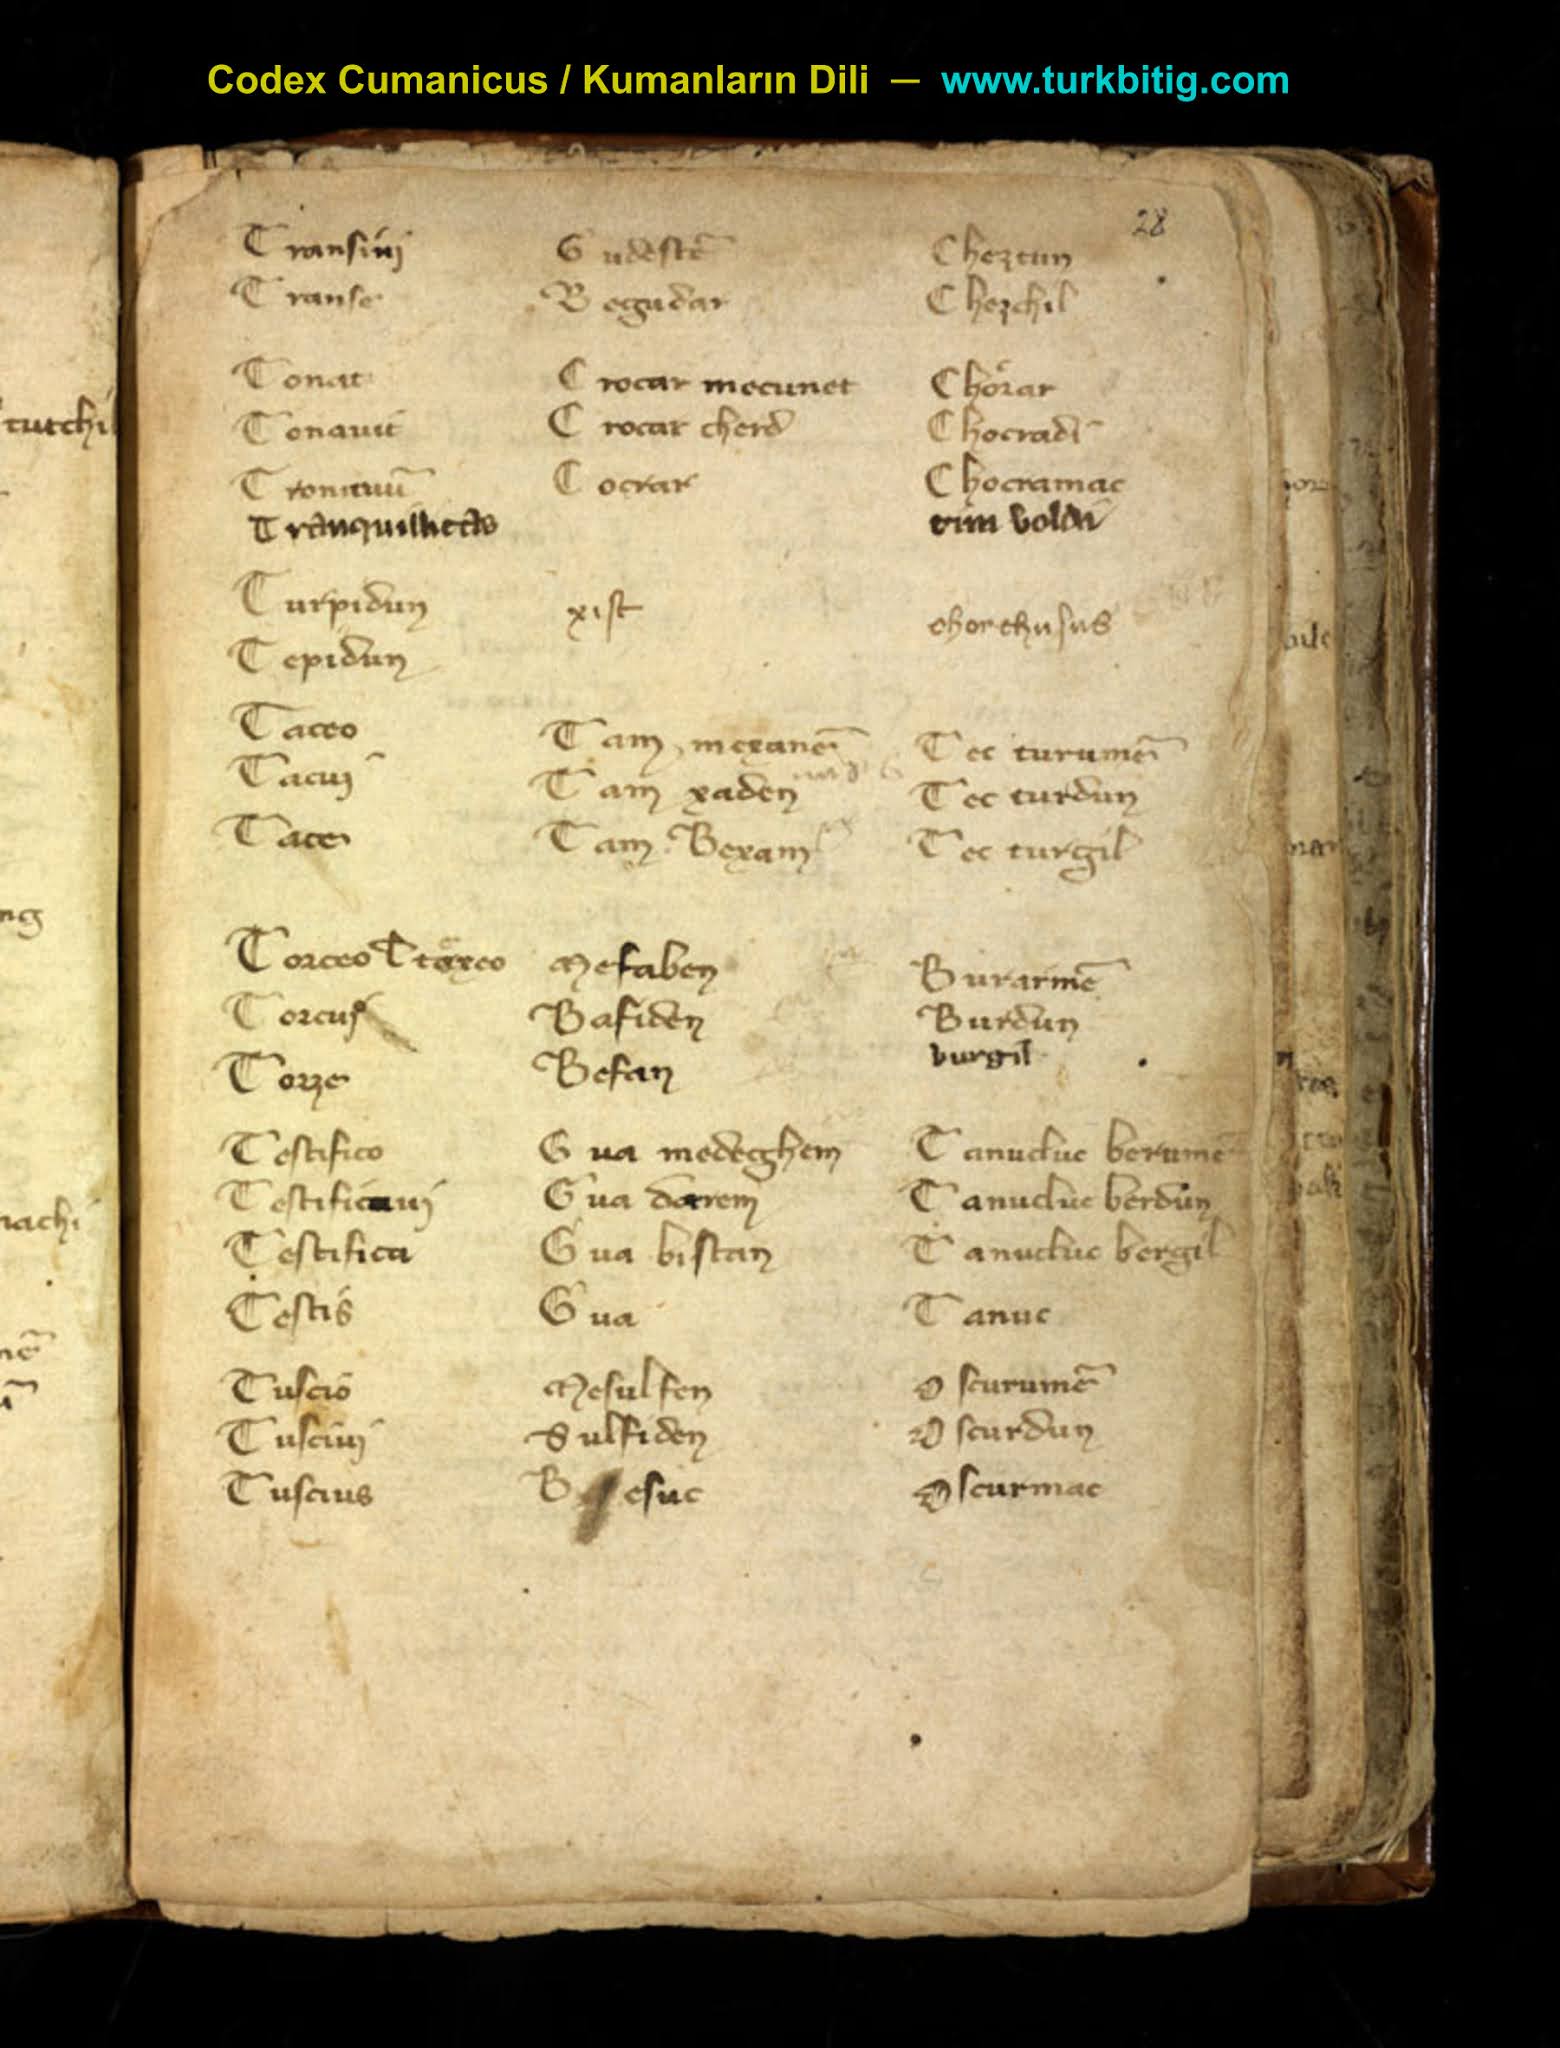 Codex Cumanicus / Kumanların Dili — www.turkbitig.com
28
Transiui Gudestẽ Cheztun
Transe Begudar Chezchil
Tonat Crocar mecunet Chorar
Tonauit Crocar cherd Chocradi
Tronituũ Cocrar Chocramac
Tranquilitas tim boldi
Turpidun xist chorchusus
Tepidun
Taceo Tam mexanẽ Tec turumẽ
Tacui Tam xaden Tec turdun
Tace Tam Bexam Tec turgil
Torceo Mefaben Burarmẽ
Torcui Bafiden Burdun
Torze Befan burgil
Testifico Gua medeghem Tanucluc berumẽ
Testificaui Gua darem Tanucluc berdun
Testifica Gua bistan Tanucluc bergil
Testis Gua Tanuc
Tuscio Mesulfen Oscurumẽ
Tusciui Sulfiden Oscurdun
Tuscius B esuc Oscurmac
tutchi
ng
machi